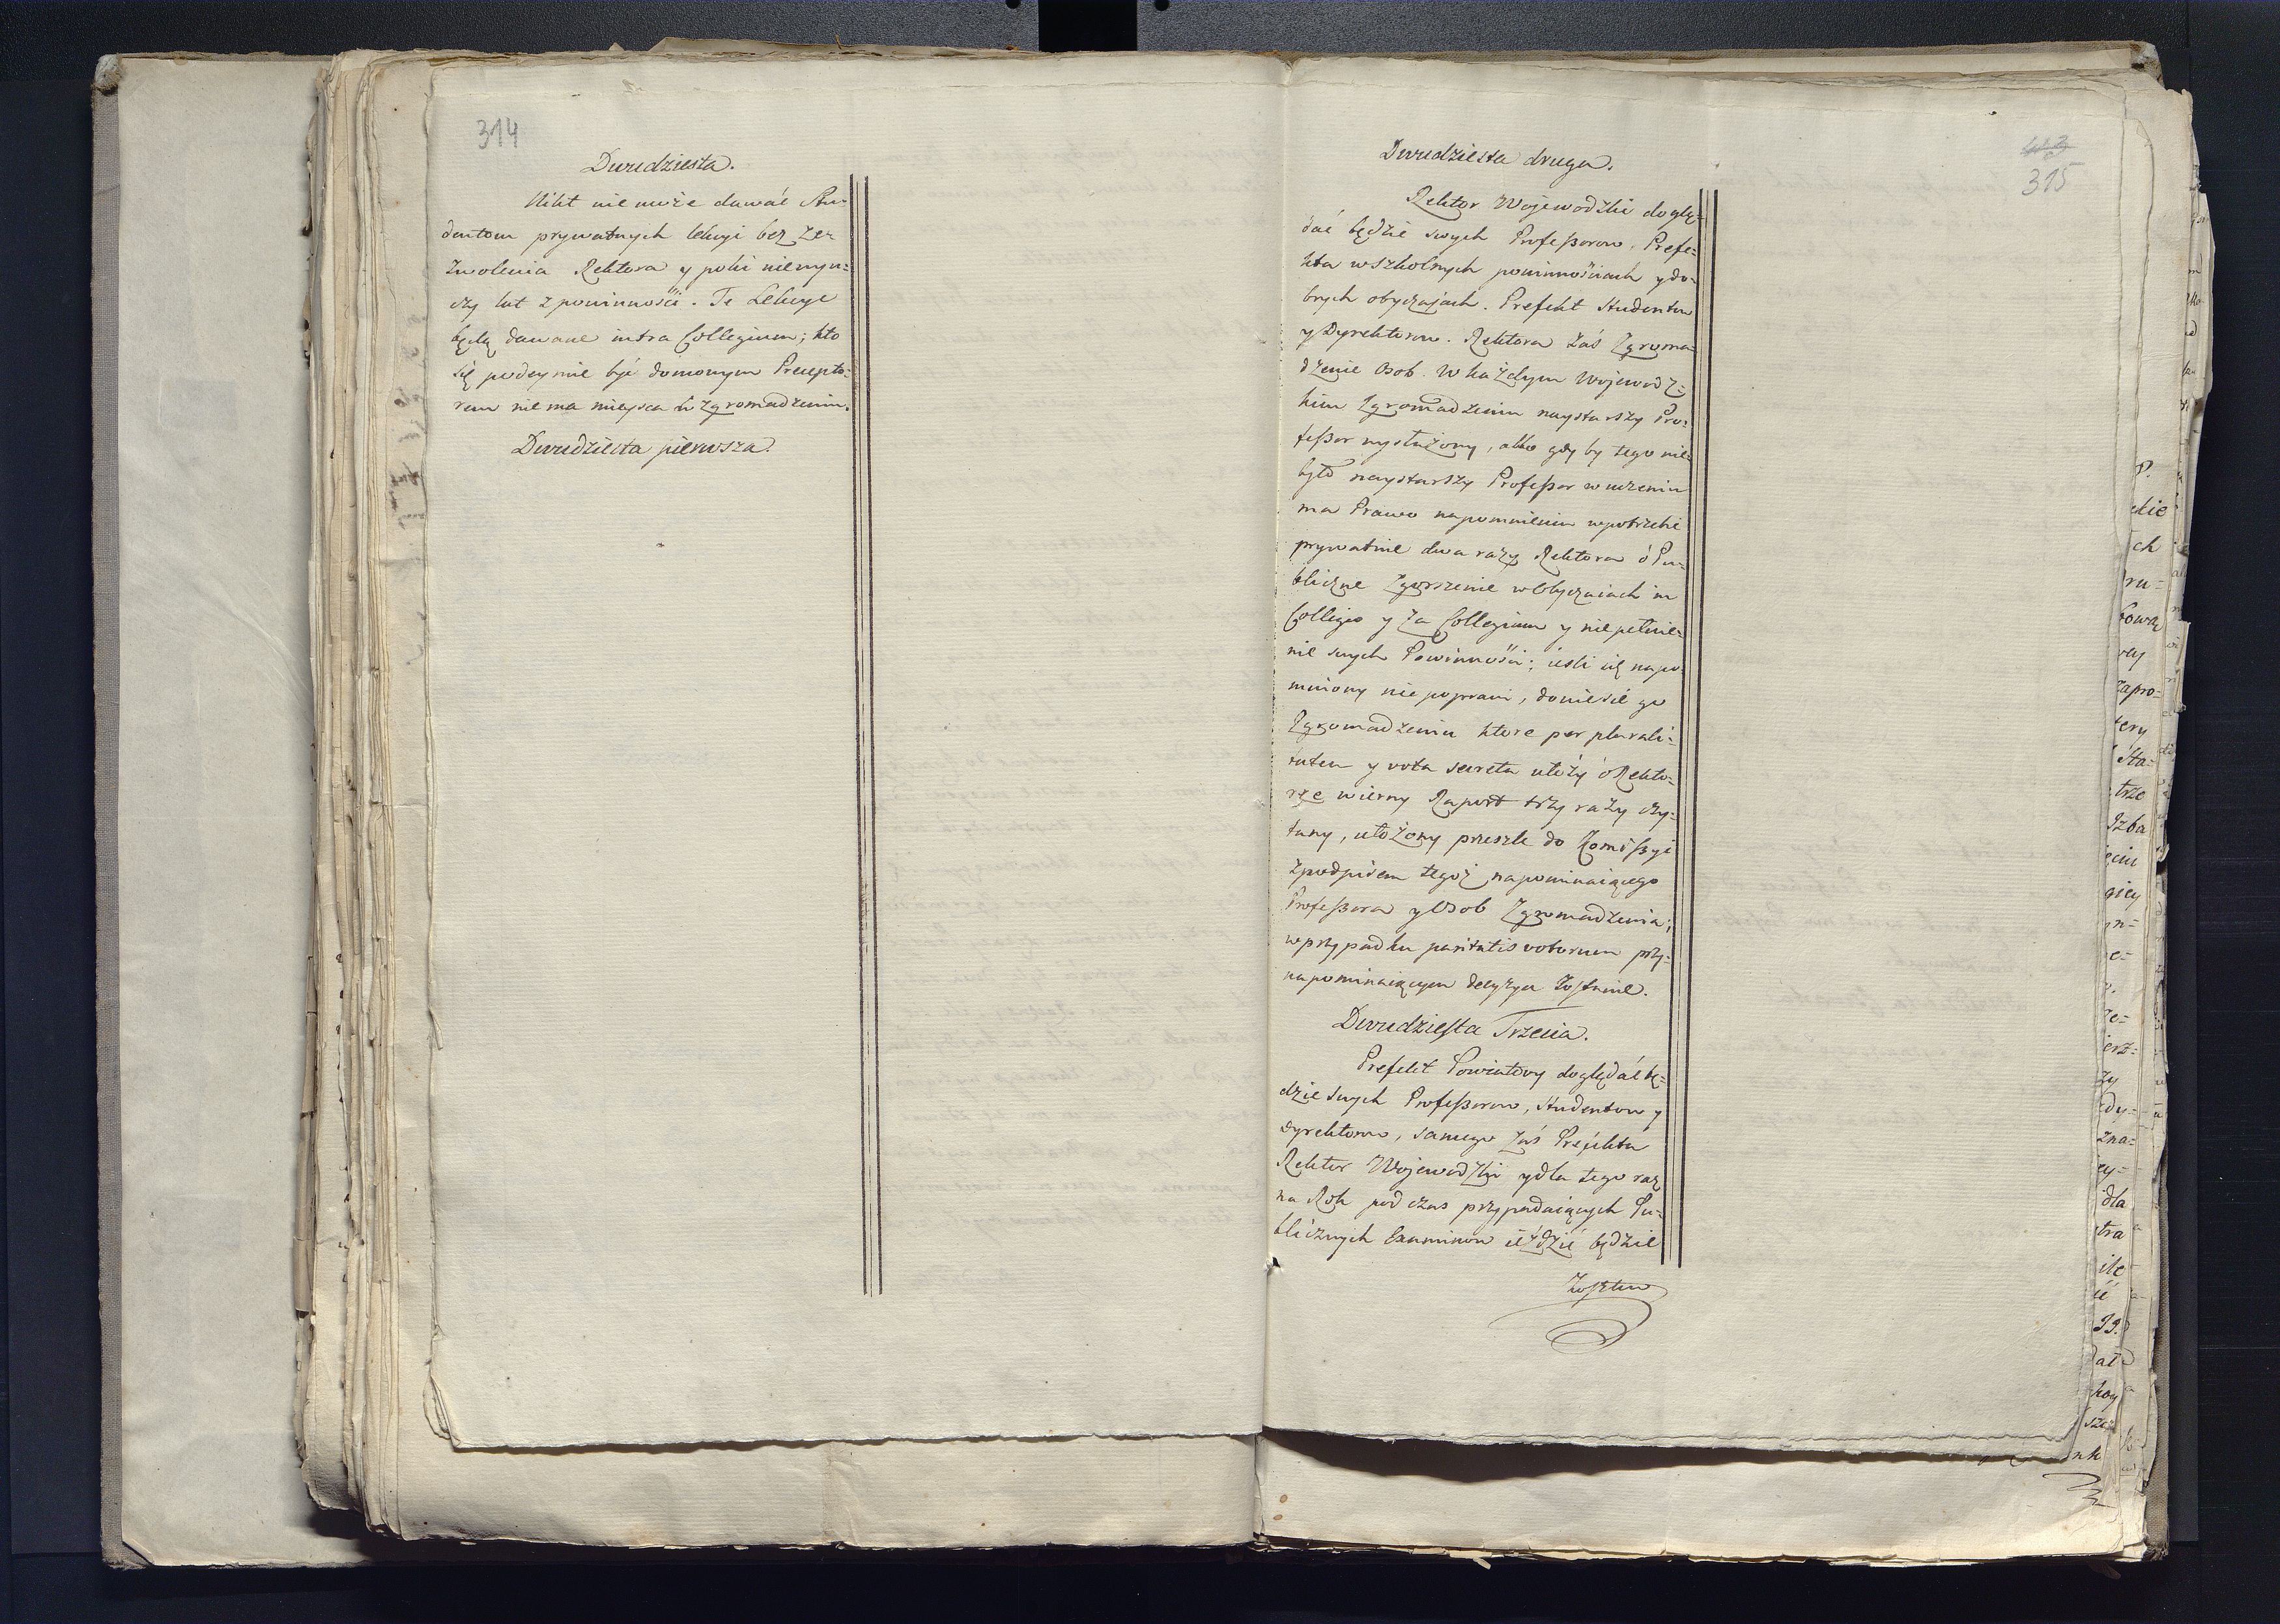 314
Dwudziesta.
Nikt nie może dawać Stu-
dentom prywatnych lekcyi bez ze-
zwolenia Rektora y poki niewyu-
czy lat z powinności. Te Lekcye
będą dawane intra Collegium; kto
się podeymie być domowym Precepto-
rem nie ma mieysca w zgromadzeniu.
Dwudziesta pierwsza.
413
315
Dwudziesta druga.
Rektor Wojewodzki doglą-
dać będzie swych Professorow, Prefe-
kta w szkolnych powinnościach y do-
brych obyczajach. Prefekt Studentow
y Dyrektorow. Rektora zaś Zgroma-
dzenie Osob. W każdym Wojewodz-
kim Zgromadzeniu naystarszy Pro-
fessor wysłużony, albo gdy by tego nie-
było naystarszy Professor w uczeniu
ma Prawo napomnienia w potrzebie
prywatnie dwa razy Rektora ó Pu-
bliczne zgorszenie w Obyczaiach in
Collegio y za Collegium y niepełnie-
nie swych Powinności; iesli się napo-
mniony nie poprawi, doniesie go
Zgromadzeniu ktore per plurali-
tatem y vota secreta ułoży ó Rekto-
rze wierny Raport trzy razy czy-
tany, ułożony przeszle do Komissyi
z podpisem tegoż napominaiącego
Professora y Osob Zgromadzenia;
w przypadku paritatis votorum przy-
napominaiącym decyzya zostanie.
Dwudziesta Trzecia.
Prefekt Powiatowy doglądać bę-
dzie swych Professorow, Studentow y
Dyrektorow, samego zaś Prefekta
Rektor Wojewodzki y dla tego raz
na Rok podczas przypadaiących Pu-
blicznych Examinow ieździć będzie